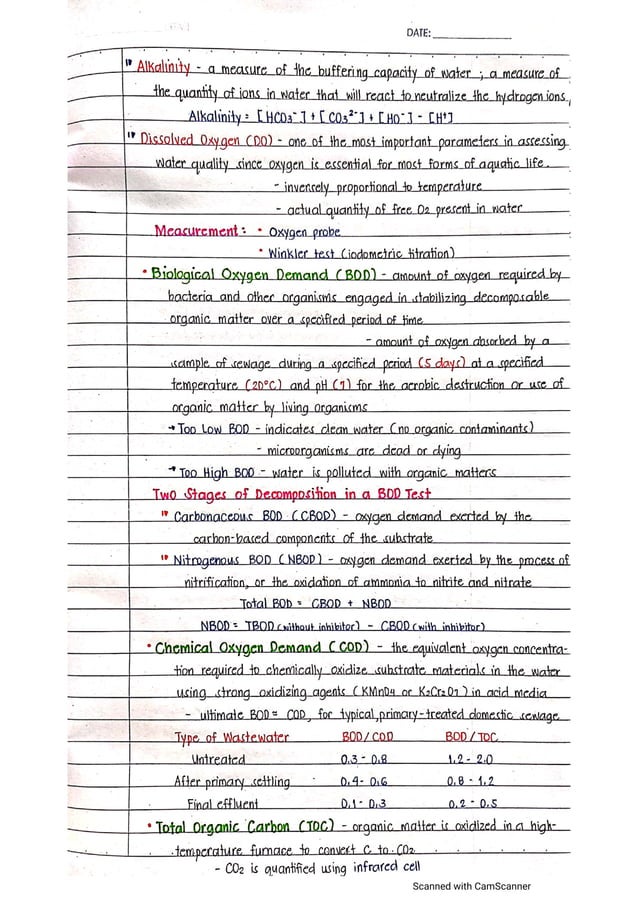 DATE:
Alkalinity - a measure of the buffering capacity of water ; a measure of
the quantity of ions in water that will react to neutralize the hydrogen ions,
Alkalinity = [HCO3⁻] + [CO3²⁻] + [HO⁻] - [H⁺]
Dissolved Oxygen (DO) - one of the most important parameters in assessing
water quality since oxygen is essential for most forms of aquatic life.
- inversely proportional to temperature
- actual quantity of free O2 present in water
Measurement : • Oxygen probe
• Winkler test (iodometric titration)
• Biological Oxygen Demand (BOD) - amount of oxygen required by
bacteria and other organisms engaged in stabilizing decomposable
organic matter over a specified period of time
- amount of oxygen absorbed by a
sample of sewage during a specified period (5 days) at a specified
temperature (20°C) and pH (7) for the aerobic destruction or use of
organic matter by living organisms
→ Too Low BOD - indicates clean water (no organic contaminants)
- microorganisms are dead or dying
→ Too High BOD - water is polluted with organic matters
Two Stages of Decomposition in a BOD Test
Carbonaceous BOD (CBOD) - oxygen demand exerted by the
carbon-based components of the substrate
Nitrogenous BOD (NBOD) - oxygen demand exerted by the process of
nitrification, or the oxidation of ammonia to nitrite and nitrate
Total BOD = CBOD + NBOD
NBOD = TBOD (without inhibitor) - CBOD (with inhibitor)
• Chemical Oxygen Demand (COD) - the equivalent oxygen concentra-
tion required to chemically oxidize substrate materials in the water
using strong oxidizing agents (KMnO4 or K2Cr2O7) in acid media
- ultimate BOD = COD, for typical, primary-treated domestic sewage
Type of Wastewater BOD/COD BOD/TOC
Untreated 0.3 - 0.8 1.2 - 2.0
After primary settling 0.4 - 0.6 0.8 - 1.2
Final effluent 0.1 - 0.3 0.2 - 0.5
• Total Organic Carbon (TOC) - organic matter is oxidized in a high-
temperature furnace to convert C to CO2
- CO2 is quantified using infrared cell
Scanned with CamScanner